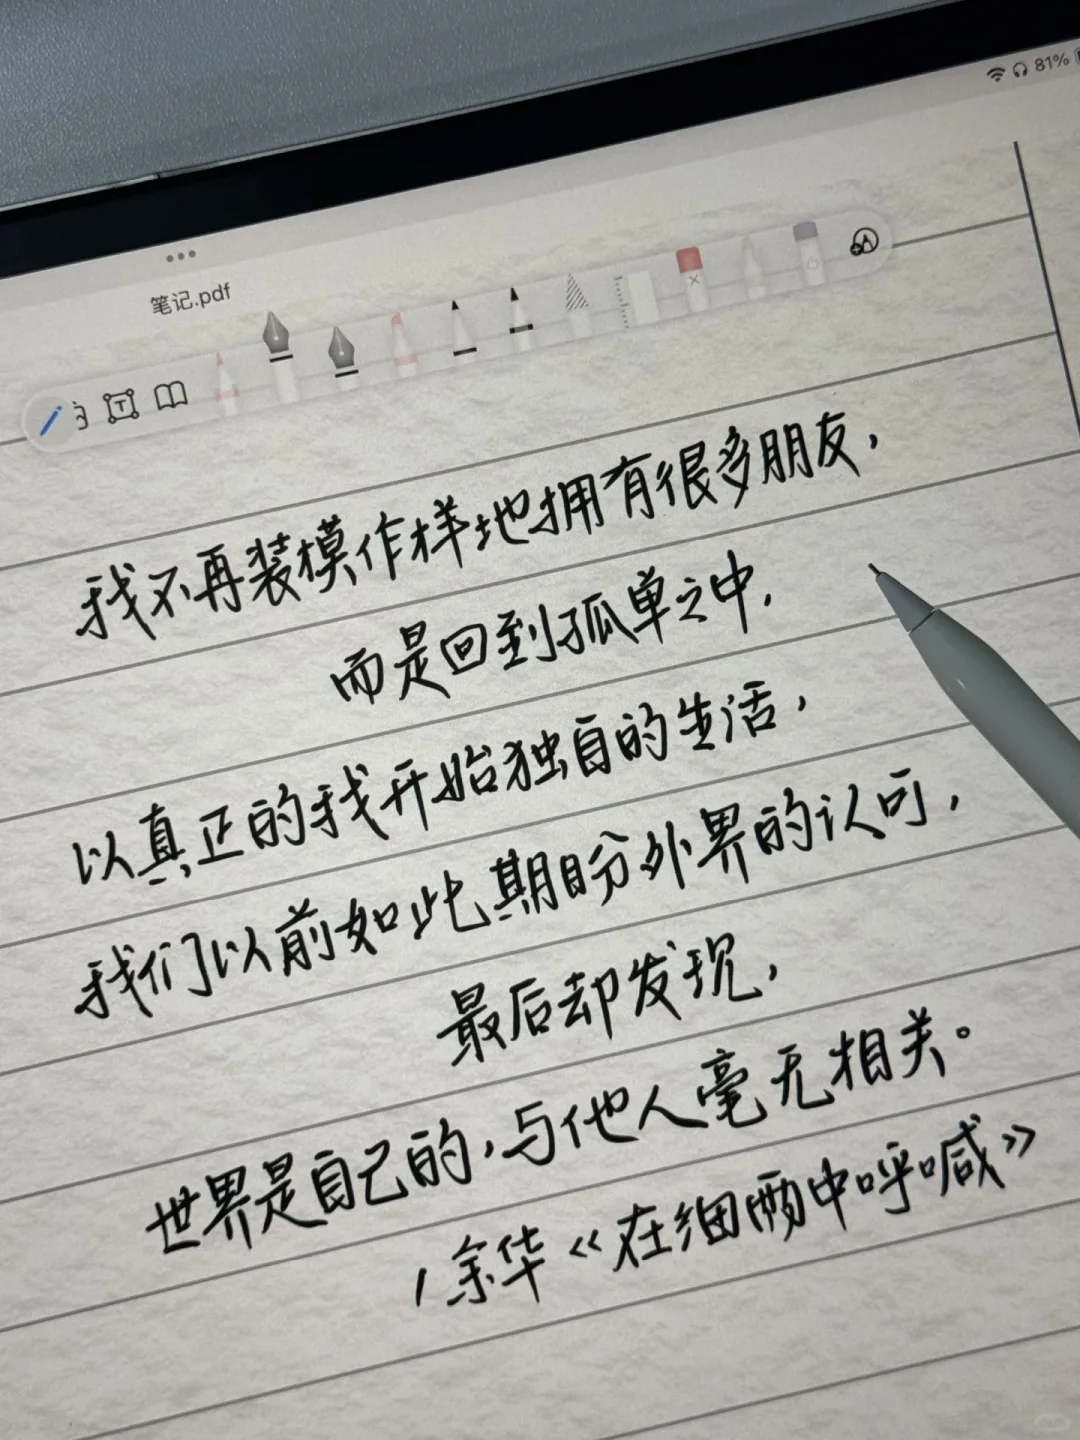 81%
笔记.pdf
我不再装模作样地拥有很多朋友，
而是回到孤单之中，
以真正的我开始独自的生活，
我们以前如此期盼外界的认可，
最后却发现，
世界是自己的，与他人毫无相关。
/余华《在细雨中呼喊》